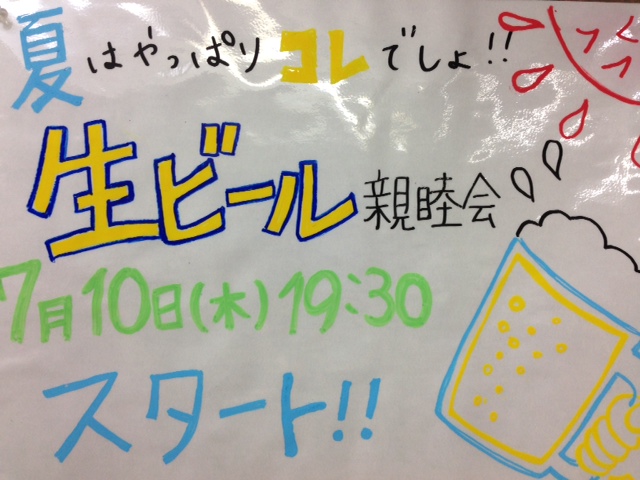 夏はやっぱりコレでしょ!!
生ビール親睦会
7月10日(木)19:30
スタート!!